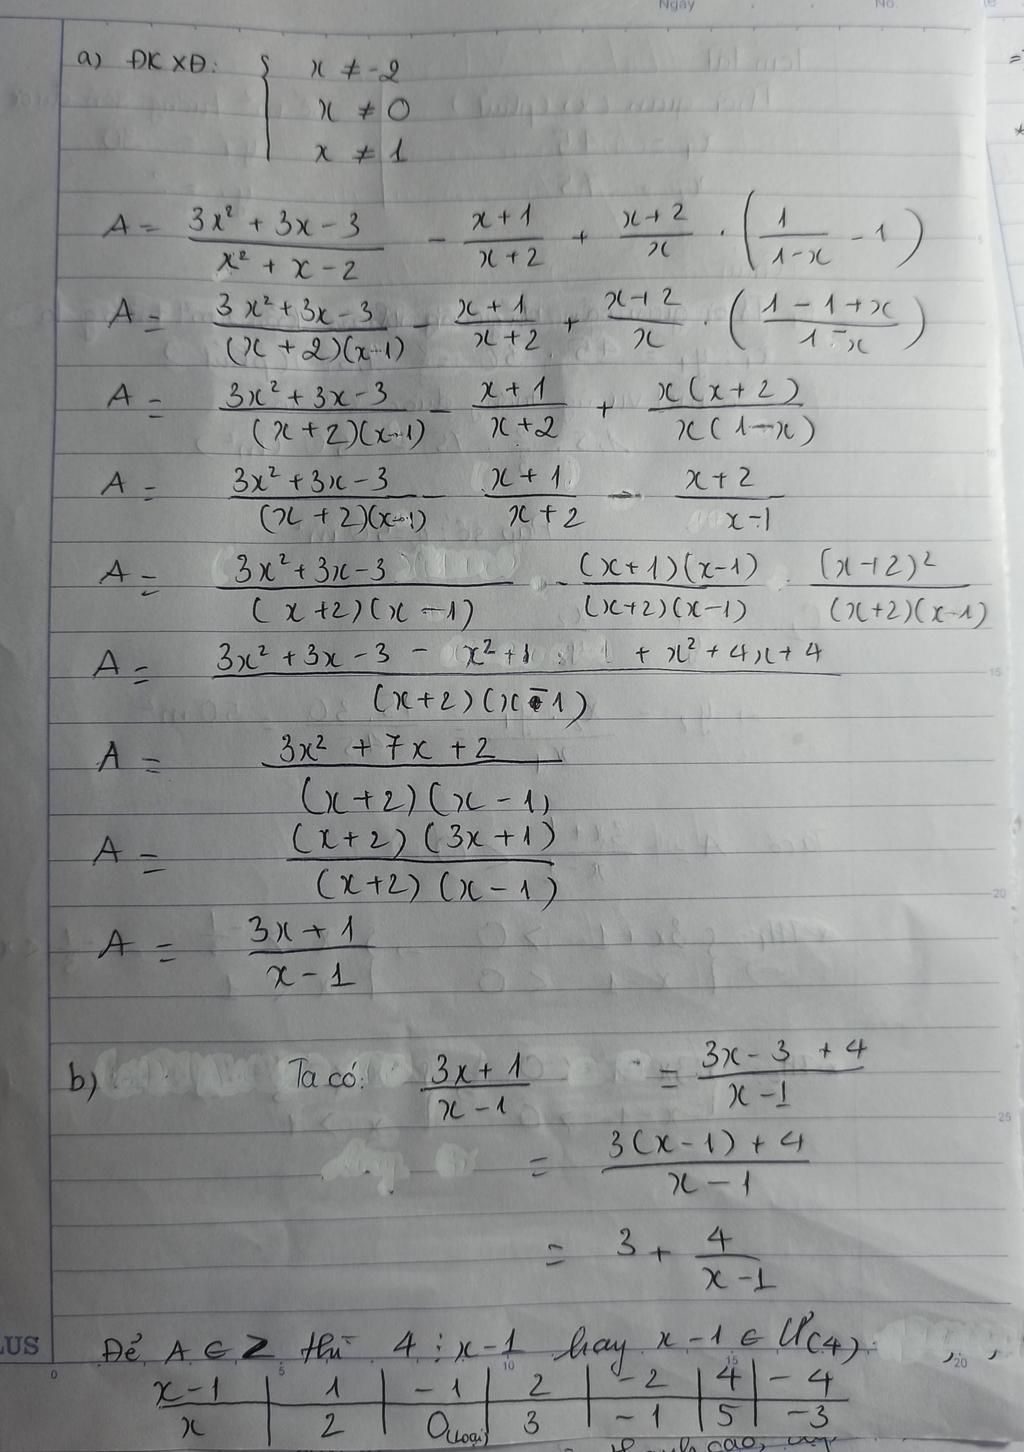 Ngày No.
a) ĐKXĐ: { x ≠ -2
x ≠ 0
x ≠ 1
A = (3x² + 3x - 3)/(x² + x - 2) - (x+1)/(x+2) + (x+2)/x . (1/(1-x) - 1)
A = (3x² + 3x - 3)/((x+2)(x-1)) - (x+1)/(x+2) + (x+2)/x . ((1-1+x)/(1-x))
A = (3x² + 3x - 3)/((x+2)(x-1)) - (x+1)/(x+2) + (x(x+2))/(x(1-x))
A = (3x² + 3x - 3)/((x+2)(x-1)) - (x+1)/(x+2) - (x+2)/(x-1)
A = (3x² + 3x - 3)/((x+2)(x-1)) - ((x+1)(x-1))/((x+2)(x-1)) - (x+2)²/((x+2)(x-1))
A = (3x² + 3x - 3 - x² + 1 + x² + 4x + 4)/((x+2)(x-1))
A = (3x² + 7x + 2)/((x+2)(x-1))
A = ((x+2)(3x+1))/((x+2)(x-1))
A = (3x+1)/(x-1)
b) Ta có: (3x+1)/(x-1) = (3x - 3 + 4)/(x-1)
= (3(x-1) + 4)/(x-1)
= 3 + 4/(x-1)
LUS Để A ∈ Z thì 4 ⋮ x-1 hay x-1 ∈ Ư(4)
x-1 | 1 | -1 | 2 | -2 | 4 | -4
x | 2 | 0 (loại) | 3 | -1 | 5 | -3